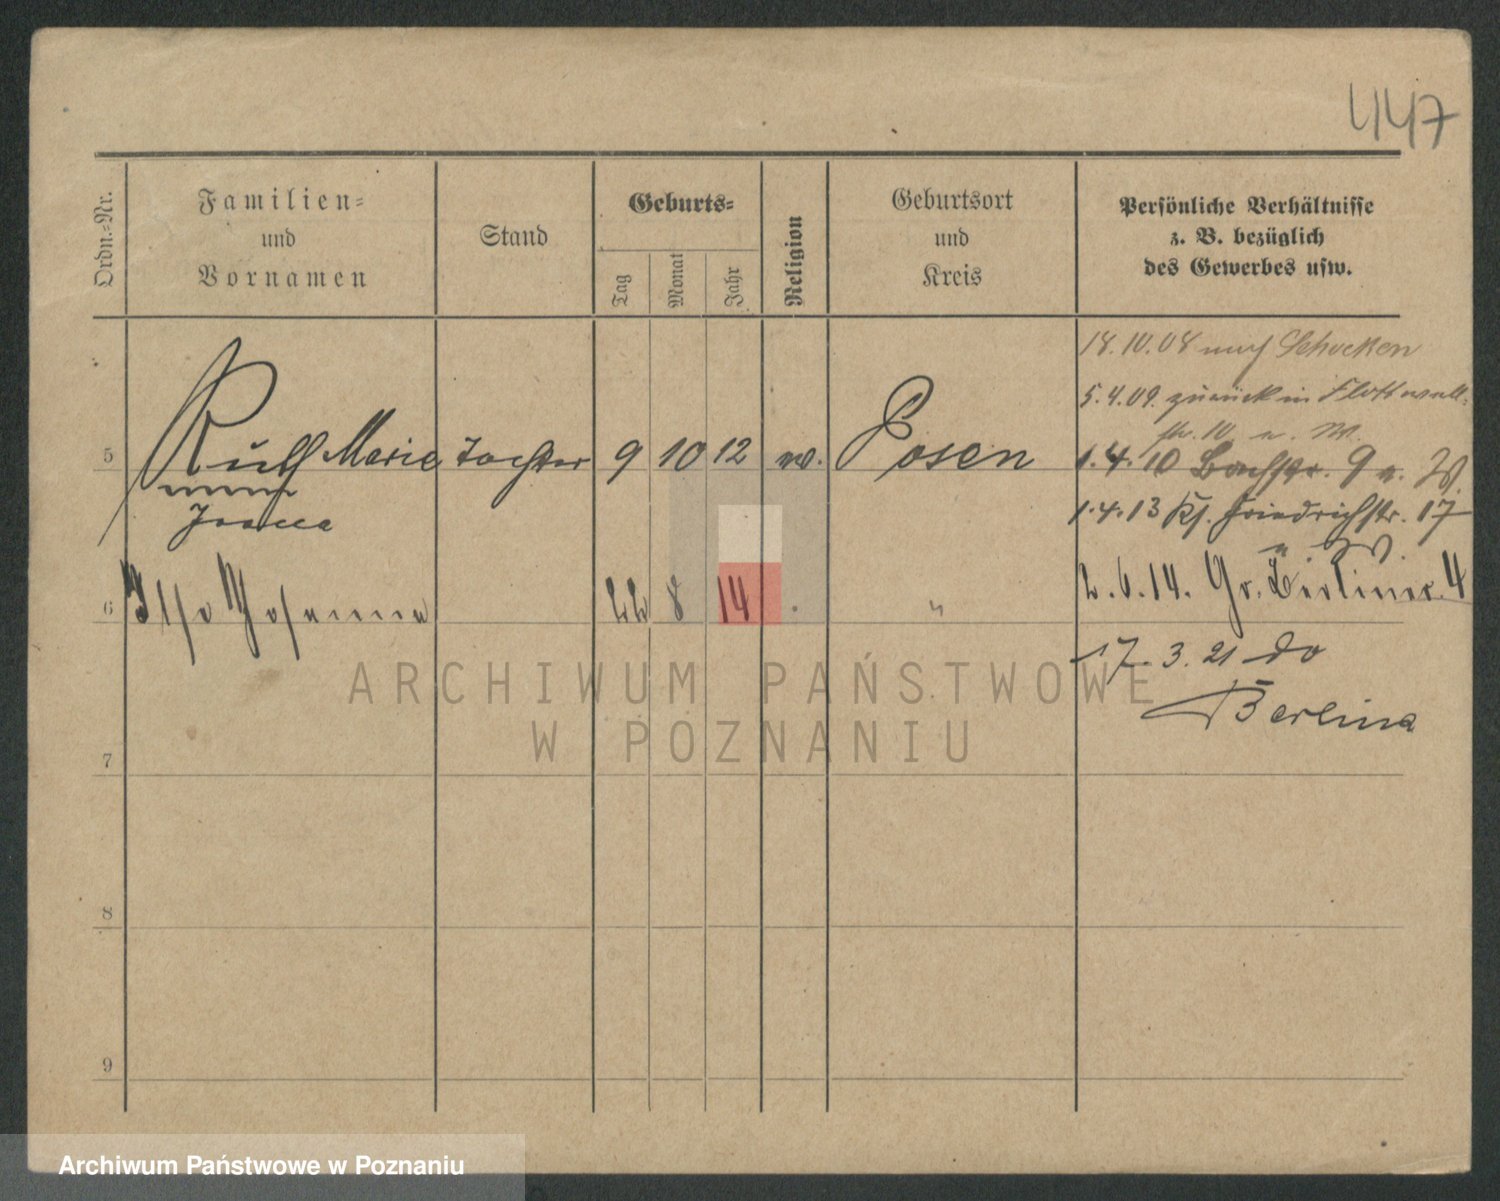 447
Ordn.-Nr.
Familien-
und
Vornamen
Stand
Geburts-
Tag
Monat
Jahr
Religion
Geburtsort
und
Kreis
Persönliche Verhältnisse
z. B. bezüglich
des Gewerbes usw.
18.10.08 nach Schocken
5.4.09. zurück in Flottwell-
str. 10 u. W.
5 Ruth Marie Tochter 9 10 12 Posen
1.4.10 Bachstr. 9 u. W.
1.4.13 Kl. Friedrichstr. 17
u. W.
6 Ilse Johanna 22 8 14 "
2.6.14. Gr. Berliner. 4
17.3.21 do
Berlina
7
8
9
ARCHIWUM PAŃSTWOWE
W POZNANIU
Archiwum Państwowe w Poznaniu